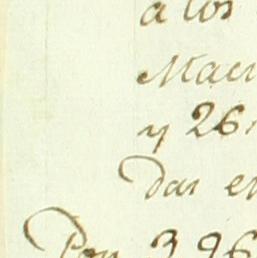 a los
y 26
das en
Por 396